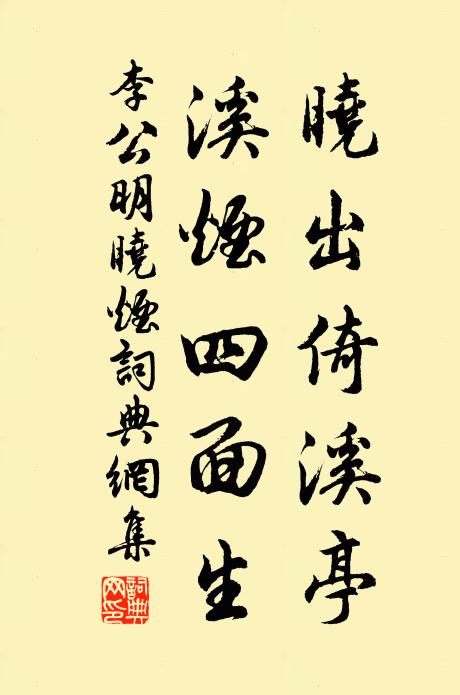 曉出倚溪亭
溪煙四面生
李公明曉煙詞典網集
詞典网印